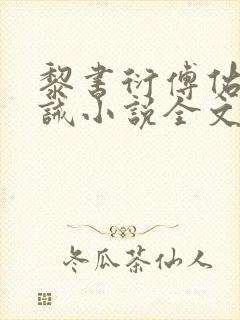 黎书衍傅佑
诚小说全文
冬瓜茶仙人